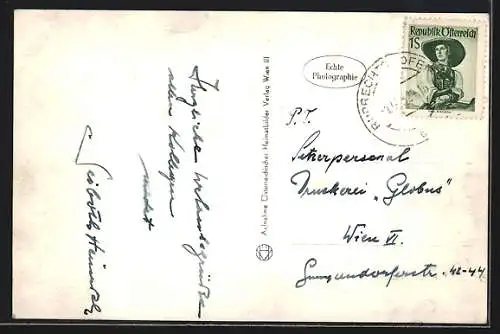 Herzliche Urlaubsgrüße
allen Kollegen
sendet
Seiboth Heinrich
Aufnahme Österreichischer Heimatbilder Verlag Wien III
Echte
Photographie
Republik Österreich
1S
RUPRECHTSHOFEN
P.T.
Setzerpersonal
Druckerei „Globus"
Wien VI.
Gumpendorferstr. 42-44